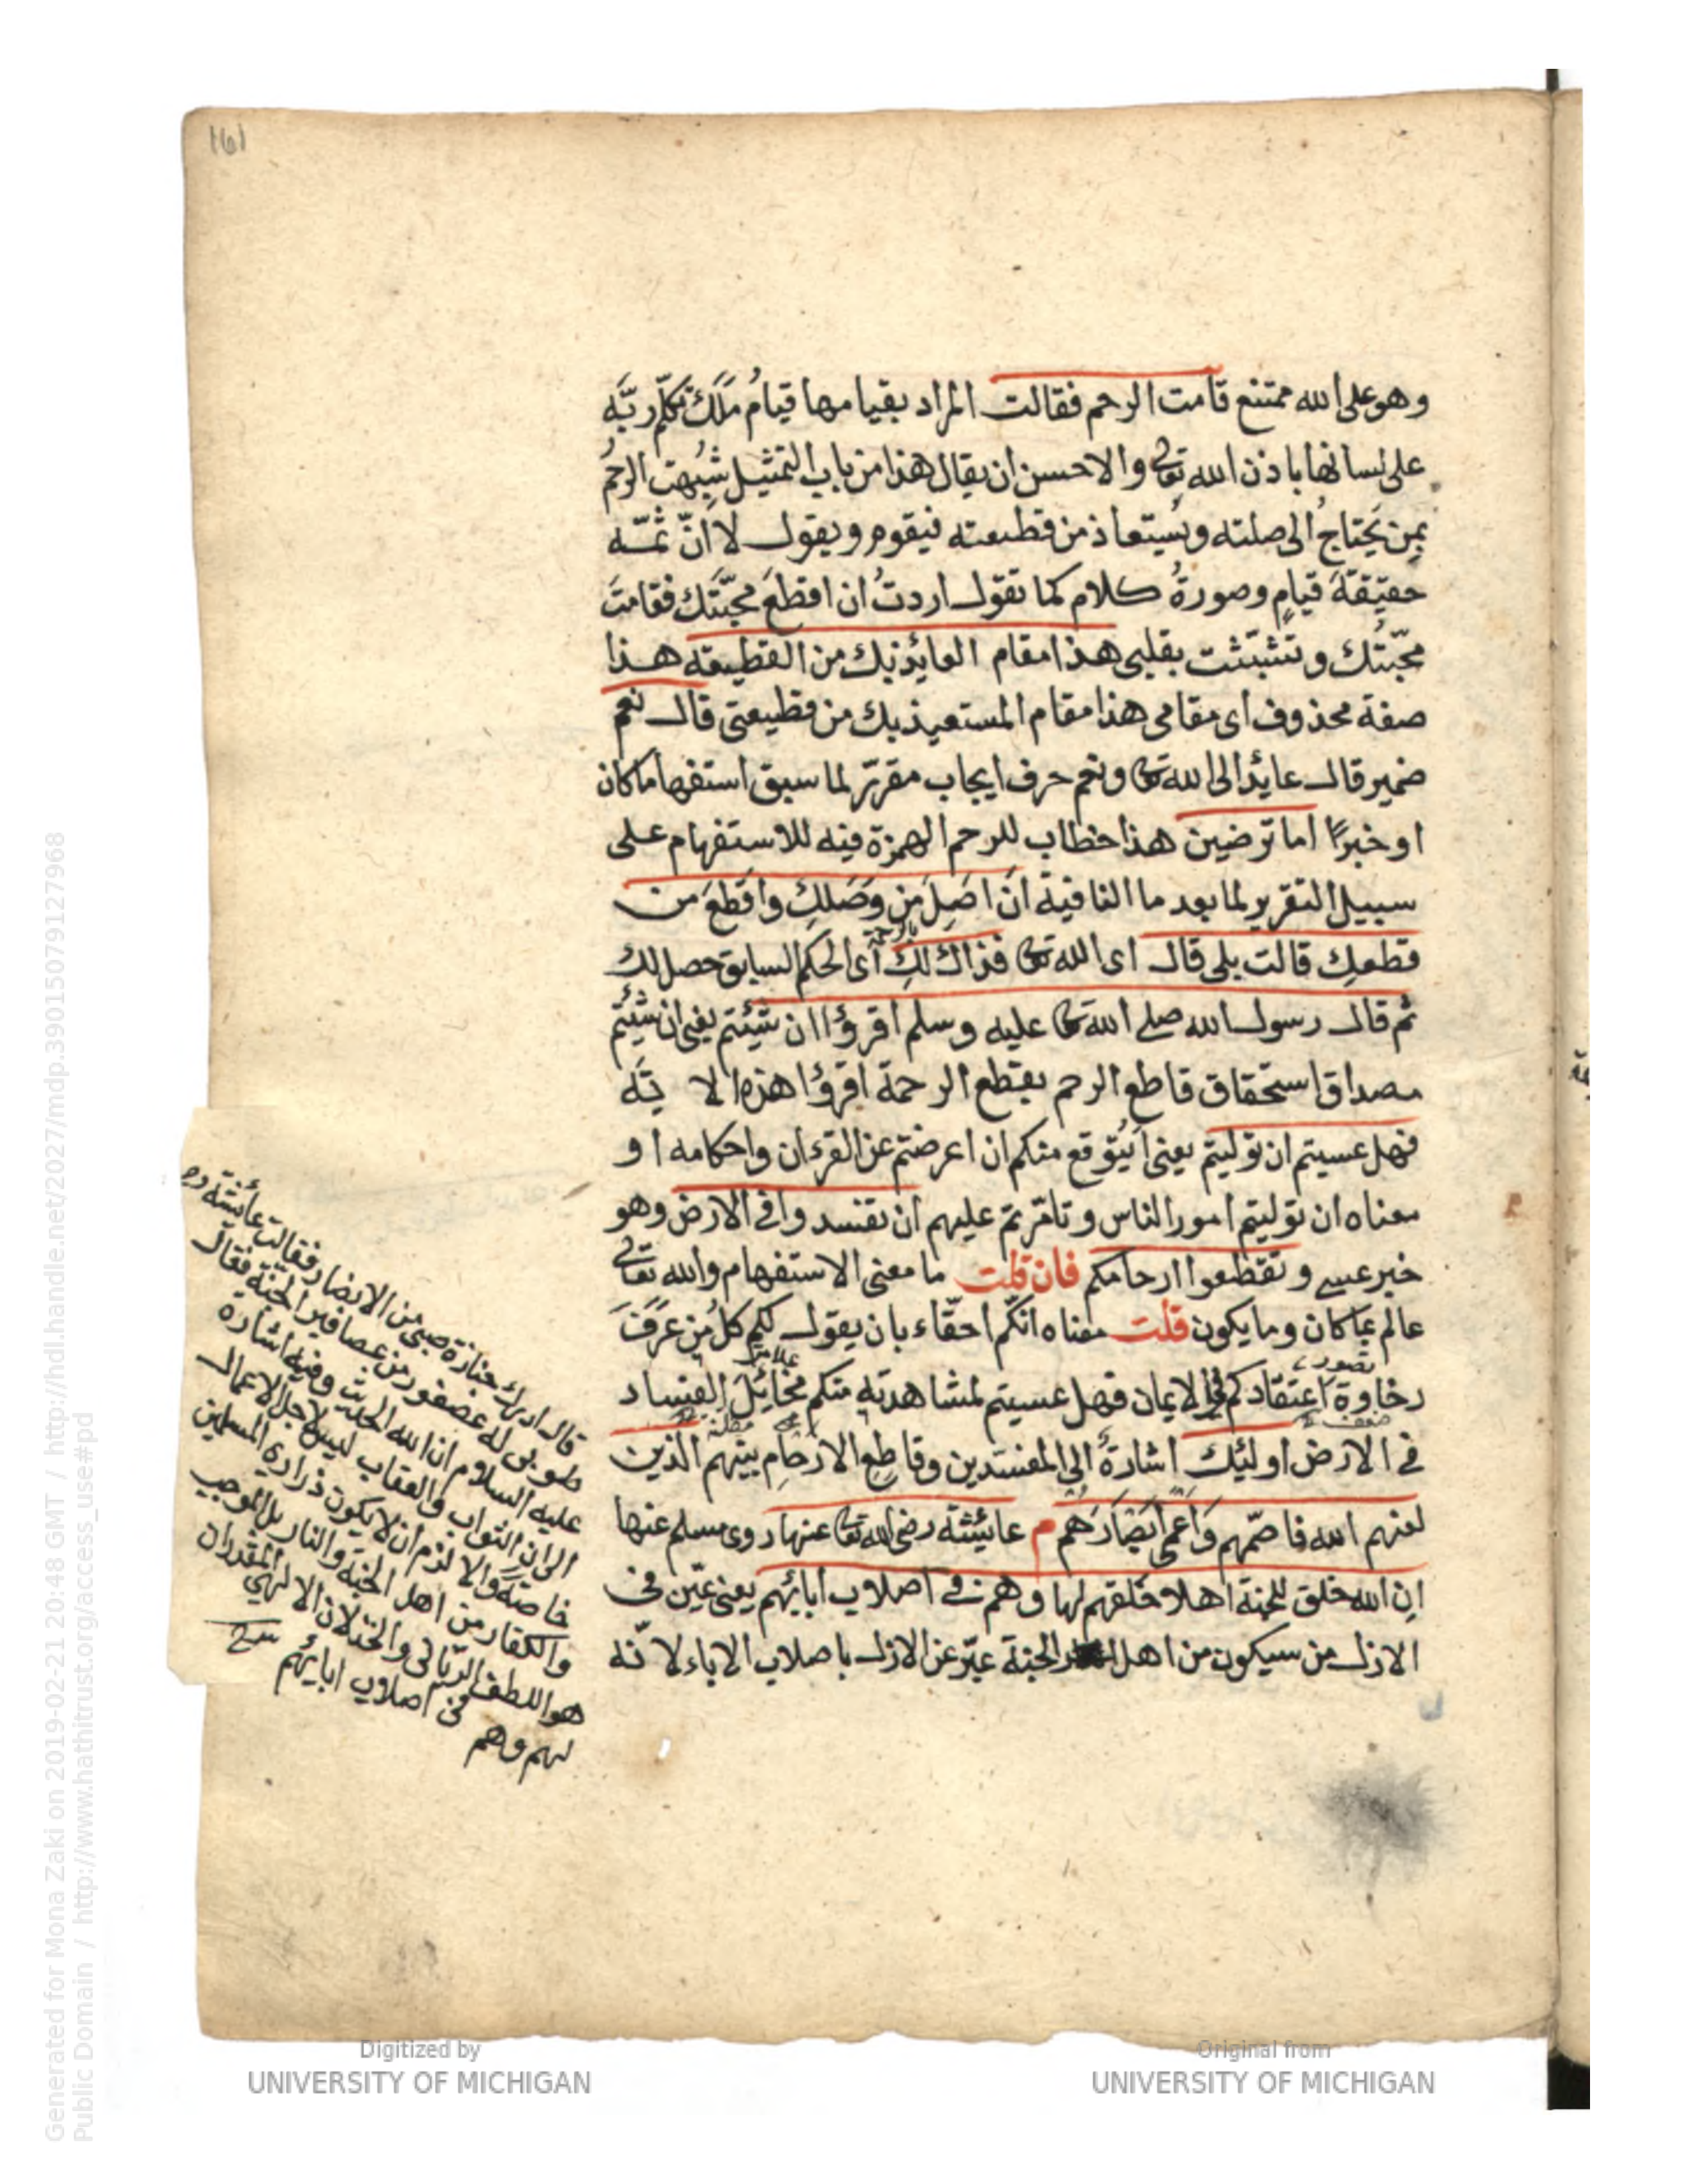 161
وهو على الله ممتنع قامت الرحم فقالت المراد بقيامها قيامُ مَلَك تكلّم ربّه
على لسانها باذن الله تعالى والاحسن ان يقال هذا من باب التمثيل شُبّهت الرحمُ
بمن يَحتاجُ الى صلته ويُستعاذ من قطيعته فيقوم ويقول لا انّ ثمّه
حقيقةَ قيامٍ وصورةُ كلام كما تقول اردتُ ان اقطعَ محبّتَك فقامت
محبّتُك وتشبّثت بقلبى هذا مقام العايذ بك من القطيعة هذا
صفة محذوف اى مقامى هذا مقام المستعيذ بك من قطيعتى قال نعم
ضمير قال عايد الى الله تعالى ونعم حرف ايجاب مقرّر لما سبق استفهاما كان
او خبرًا اما ترضين هذا خطاب للرحم الهمزة فيه للاستفهام على
سبيل التقرير لما بعد ما النافية ان اصِلَ مَن وصَلكِ واقطعَ من
قطعكِ قالت بلى قال اى الله تعالى فذاك لكِ اى الحكم السابق حصل لك
ثم قال رسول الله صلى الله تعالى عليه وسلم اقرؤا ان شئتم يعنى ان شئتم
مصداق استحقاق قاطع الرحم بقطع الرحمة اقرؤا هذه الا يَة
فهل عسيتم ان توليتم يعنى ايُتوقع منكم ان اعرضتم عن القرءان واحكامه او
معناه ان توليتم امور الناس وتامّرتم عليهم ان تفسدوا فى الارض وهو
خبر عسى وتقطعوا ارحامكم فان قلت ما معنى الاستفهام والله تعالى
عالم بما كان وما يكون قلت معناه انكم احقّاء بان يقول لكم كلُ مَن عرَفَ
رخاوة اعتقادكم فى الايمان فهل عسيتم لمشاهدته منكم مخائِلَ الفساد
فى الارض اولئك اشارةٌ الى المفسدين وقاطعِ الارحام بينهم الذين
لعنهم الله فاصمّهم وَاعمى ابصَارَهم م عايشة رضى الله تعالى عنها روى مسلم عنها
ان الله خلق للجنة اهلا خلقهم لها وهم فى اصلاب ابائهم يعنى عيّن فى
الازل من سيكون من اهل الجنة عبّر عن الازل باصلاب الاباء لا نّه
قال ادرك جنازة صبى من الانصار فقالت عائشة
طوبى له عصفور من عصافير الجنة فقال
عليه السلام ان الله الحديث وفيه اشارة
الى ان الثواب والعقاب ليس لاجل الاعمال
خاصة والا لزم ان لا يكون ذرارى المسلمين
والكفار من اهل الجنة والنار بل الموجب
هو اللطف الربّانى والخذلان الالهى المقدران
لهم وهم فى اصلاب ابائهم
Digitized by
UNIVERSITY OF MICHIGAN
Original from
UNIVERSITY OF MICHIGAN
Generated for Mona Zaki on 2019-02-21 20:48 GMT / http://hdl.handle.net/2027/mdp.39015079127968
Public Domain / http://www.hathitrust.org/access_use#pd